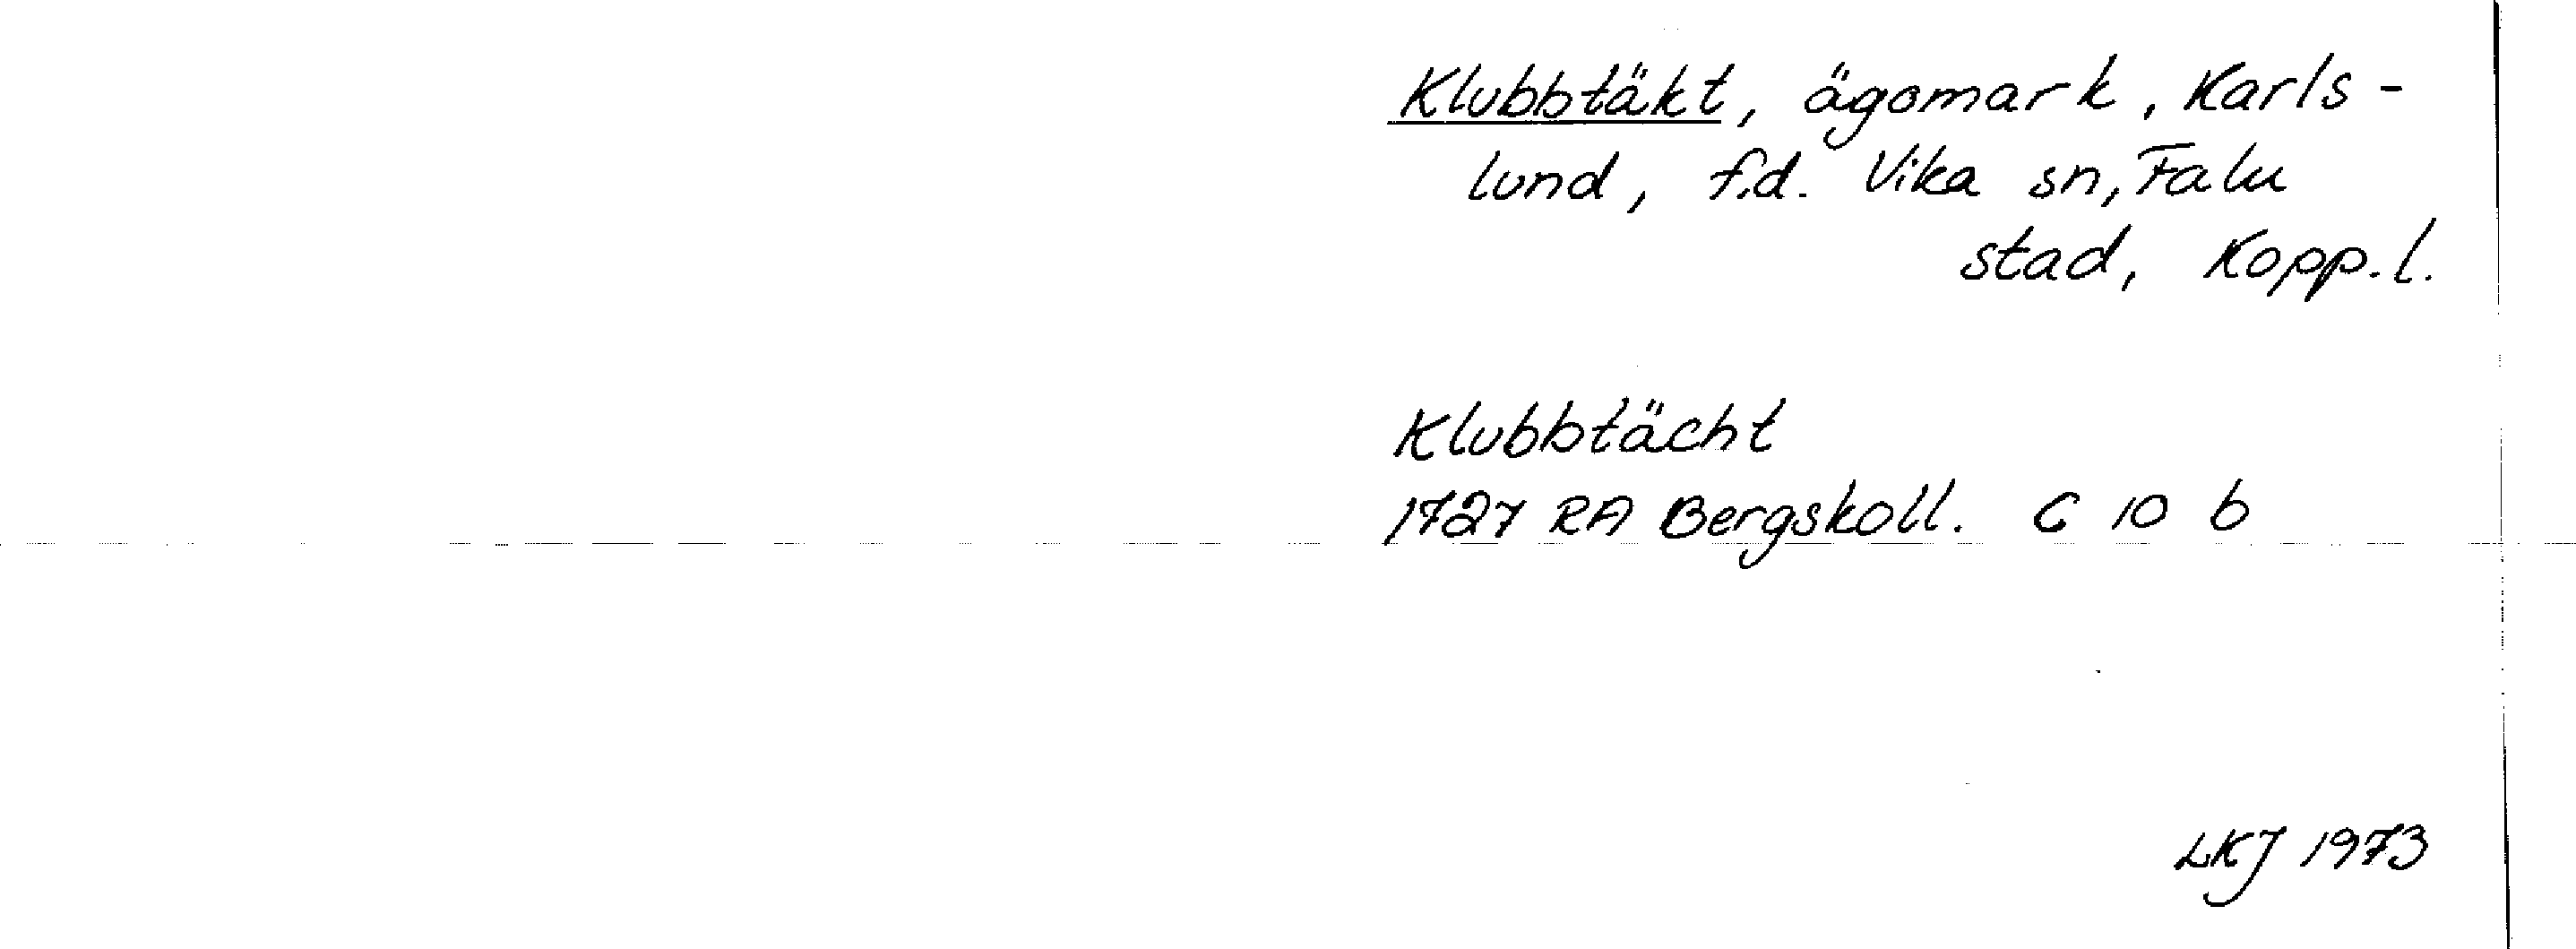 Klubbtäkt, ägomark, Karls-
lund, f.d. Vika sn, Falu
stad, Kopp.l.
Klubbtächt
1727 RA Bergskoll. C 10 b
LKJ 1973